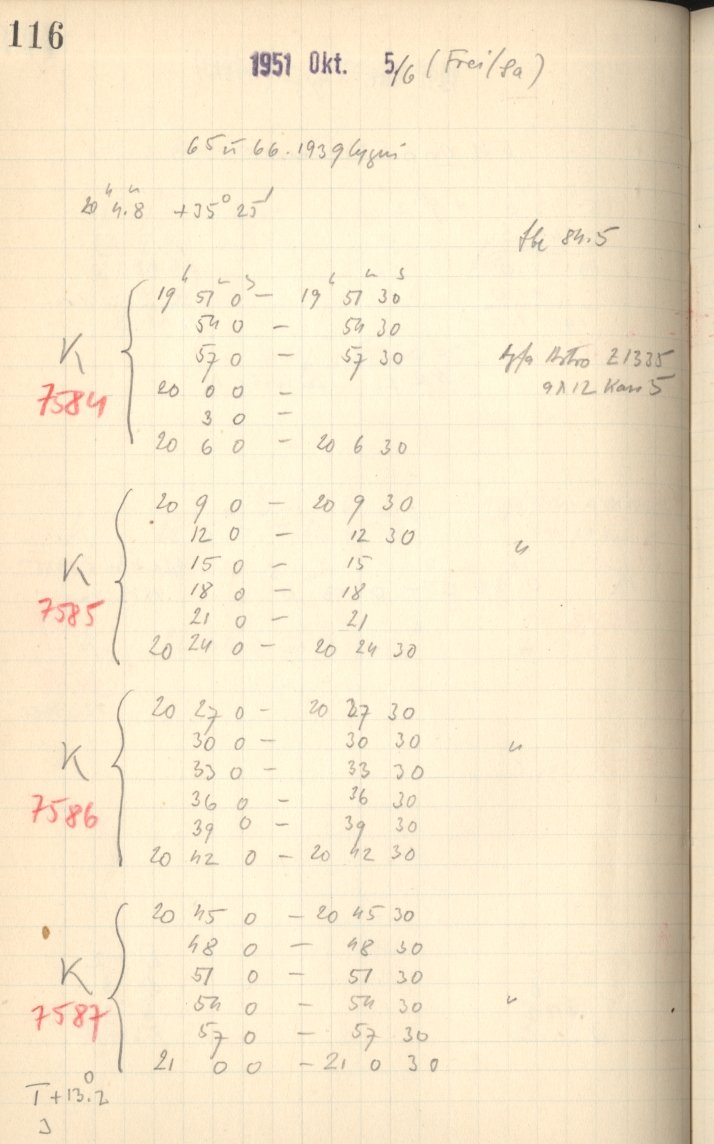 116
1951 Okt. 5/6 (Frei/Sa)
65 u 66. 1939 Cygni
20 h 4.8 m +35° 25'
84.5
19 h 51 m 0 s – 19 h 51 m 30 s
54 0 – 54 30
K 57 0 – 57 30 Agfa Astro Z1335
7584 20 0 0 – 9x12 Kass 5
3 0 –
20 6 0 – 20 6 30
20 9 0 – 20 9 30
12 0 – 12 30 "
K 15 0 – 15
18 0 – 18
7585 21 0 – 21
20 24 0 – 20 24 30
20 27 0 – 20 27 30
30 0 – 30 30 "
K 33 0 – 33 30
7586 36 0 – 36 30
39 0 – 39 30
20 42 0 – 20 42 30
20 45 0 – 20 45 30
48 0 – 48 30
K 51 0 – 51 30
7587 54 0 – 54 30 "
57 0 – 57 30
21 0 0 – 21 0 30
T +13.2°
3